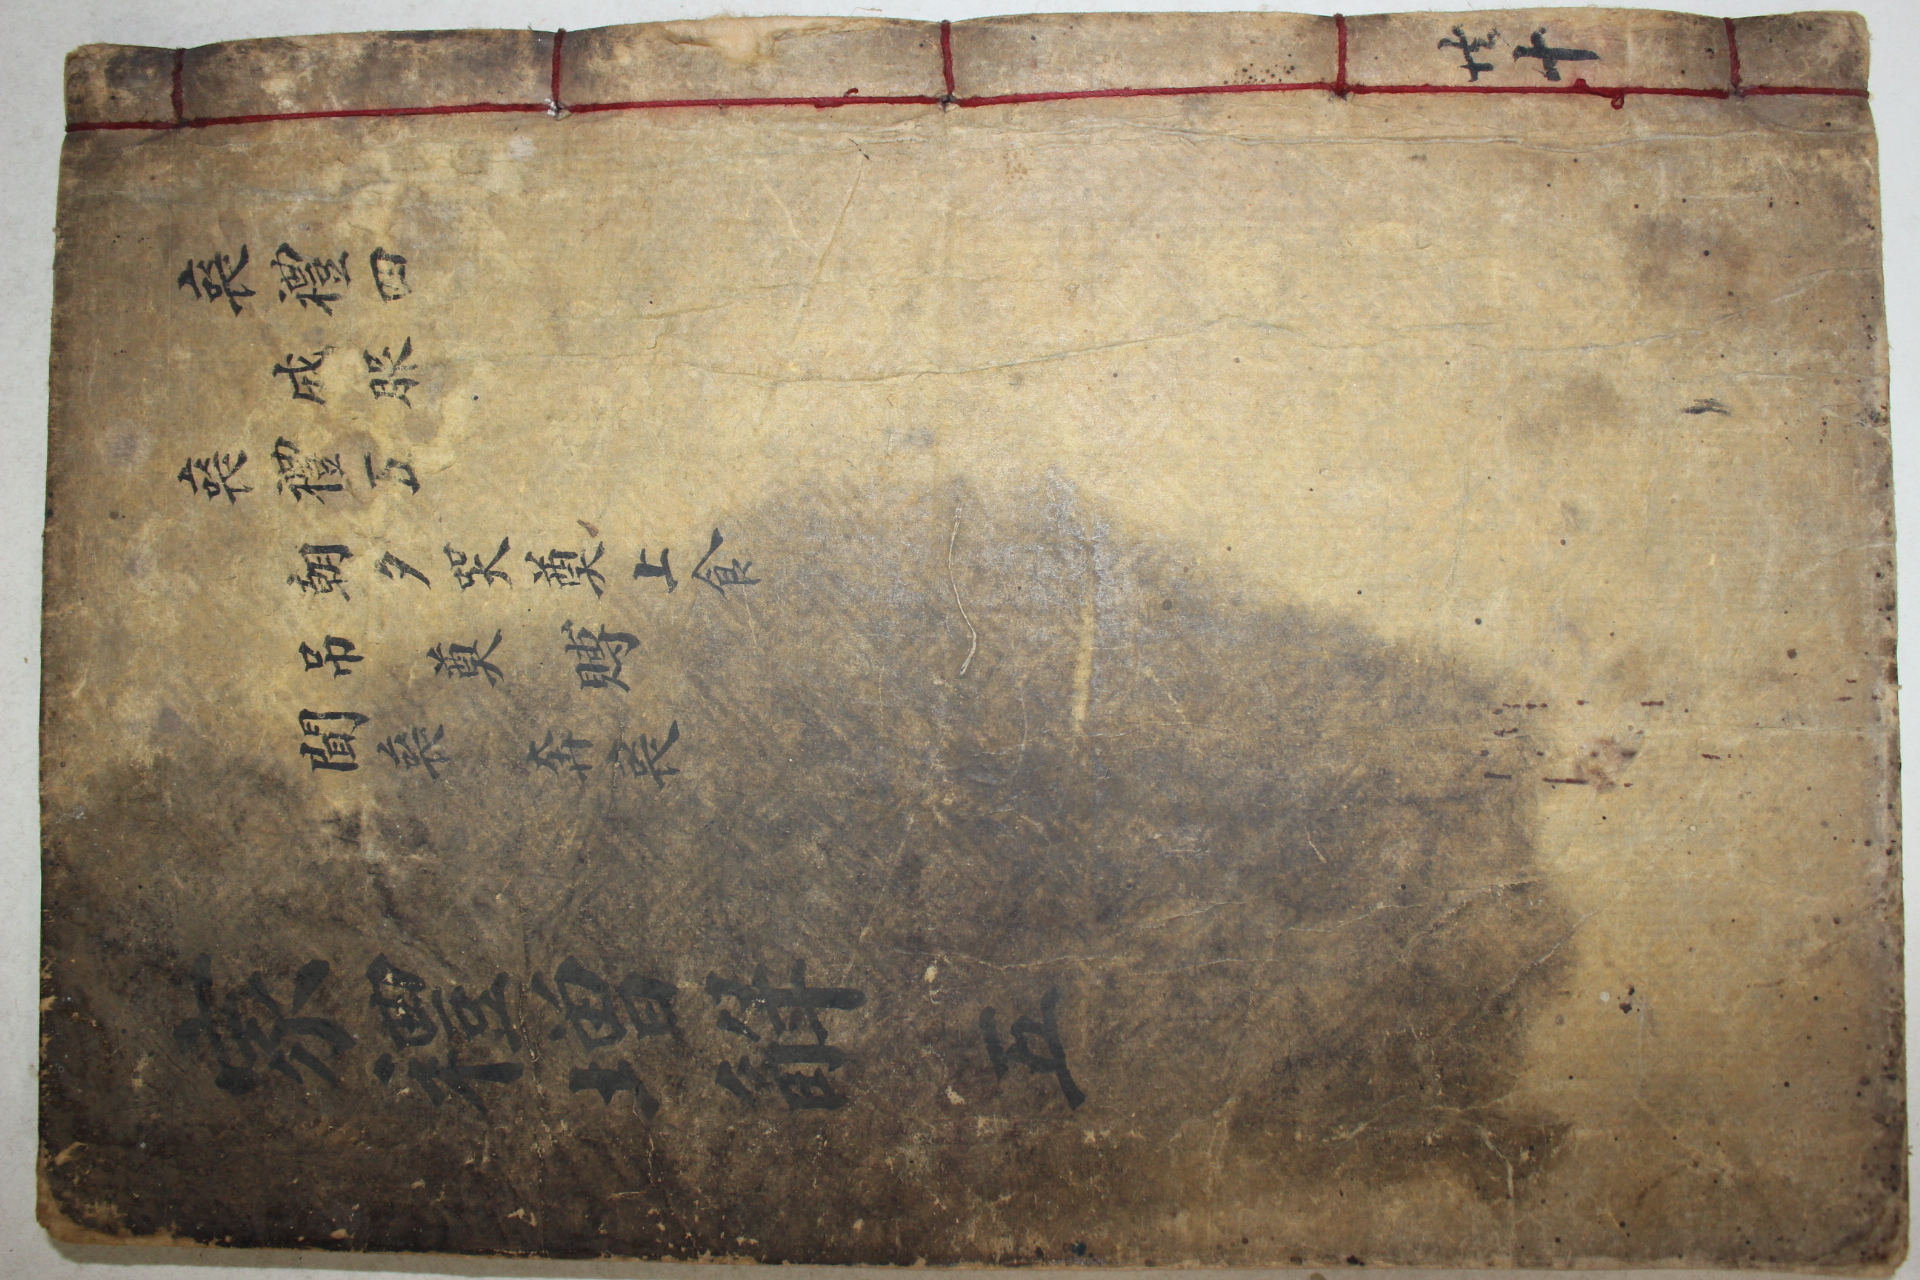 喪禮四
成服
喪禮五
朝夕哭奠上食
吊奠賻
聞喪奔喪
家禮增解 五
共十